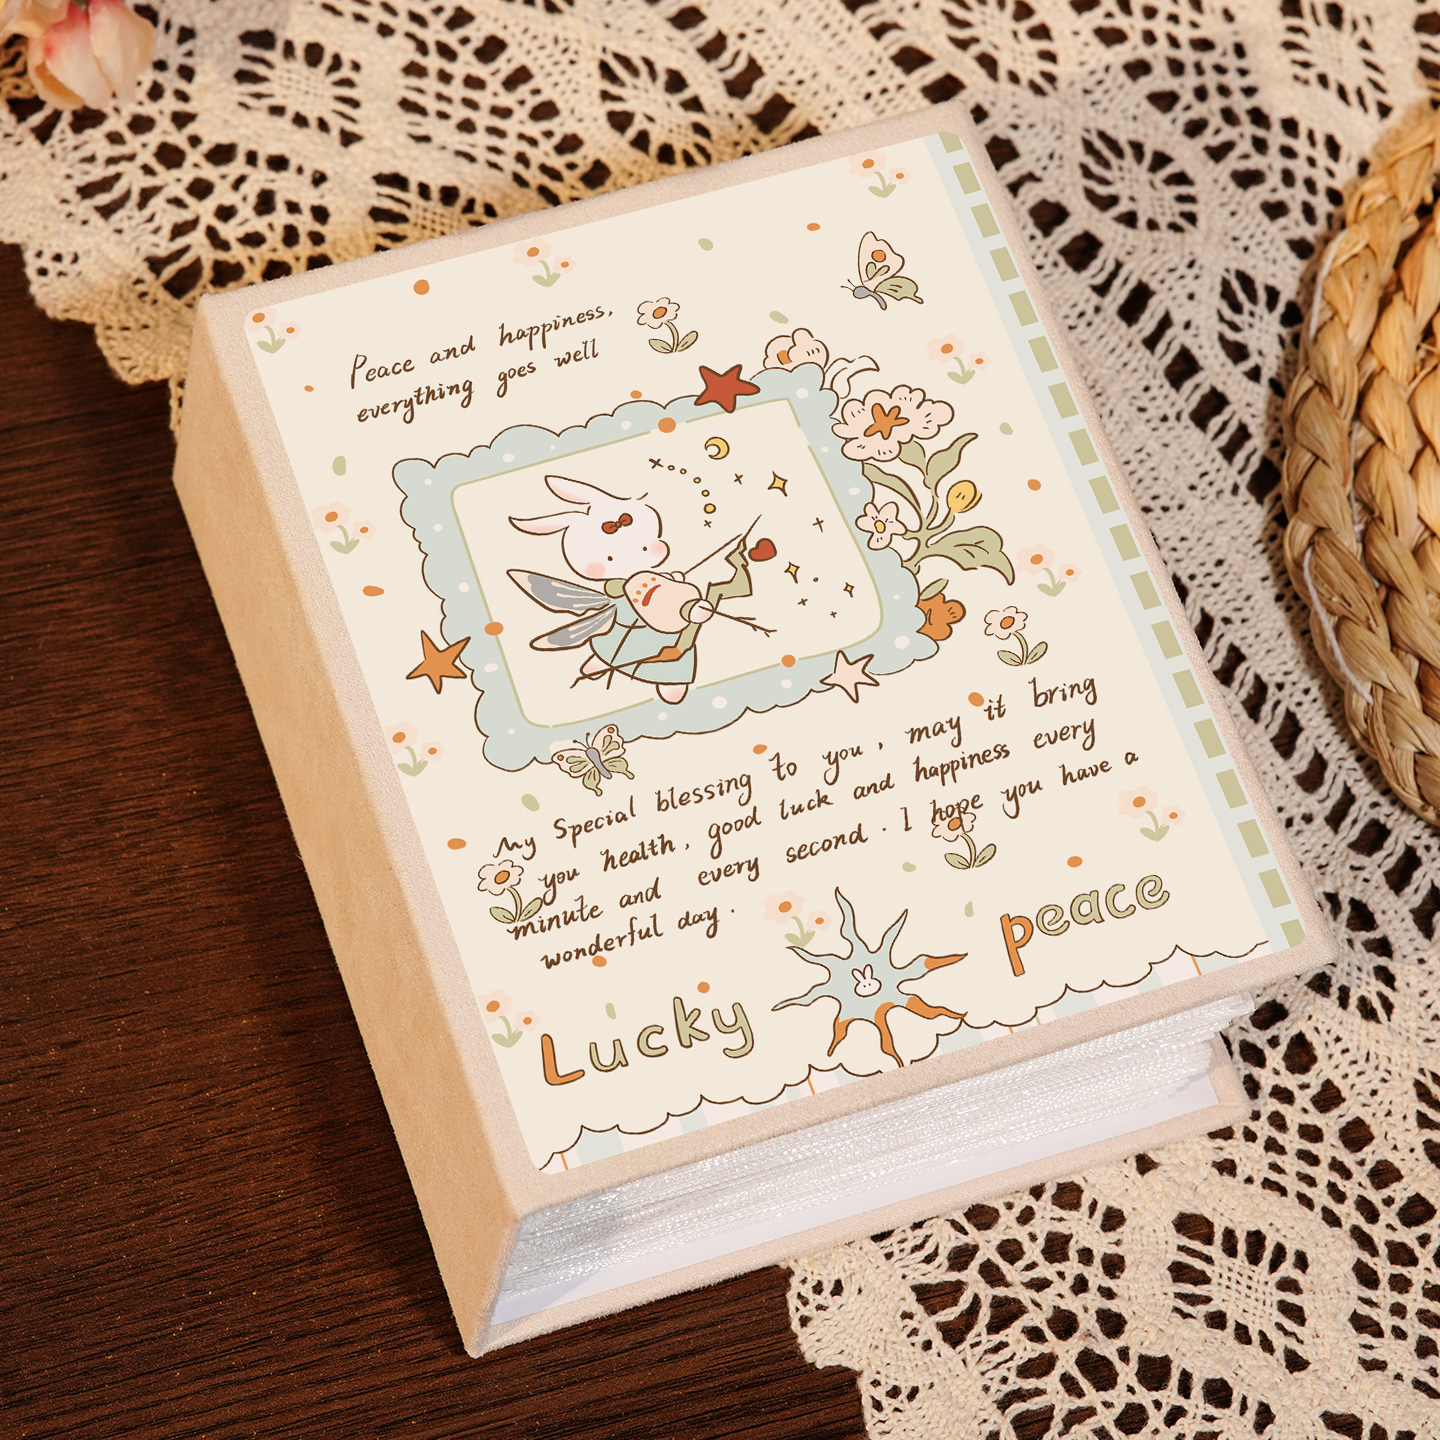 Peace and happiness,
everything goes well
My Special blessing to you, may it bring
you health, good luck and happiness every
minute and every second. I hope you have a
wonderful day.
Lucky
peace